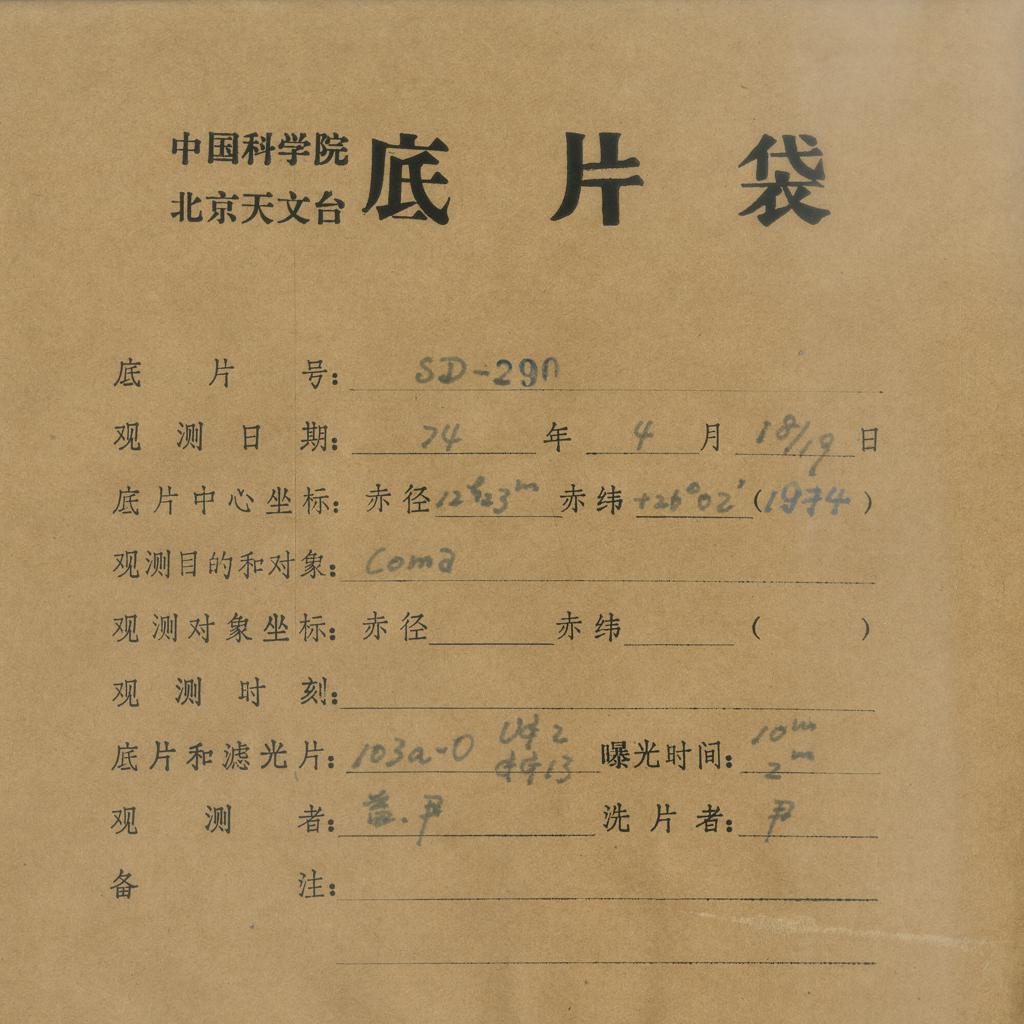 中国科学院
北京天文台
底片袋
底片号: SD-290
观测日期: 74年 4月 18/19日
底片中心坐标: 赤径 12h23m 赤纬 +26°02′ (1974)
观测目的和对象: Coma
观测对象坐标: 赤径 赤纬 ( )
观测时刻:
底片和滤光片: 103a-O 2 13 曝光时间: 10m 2m
观测者: 尹 洗片者: 尹
备注: